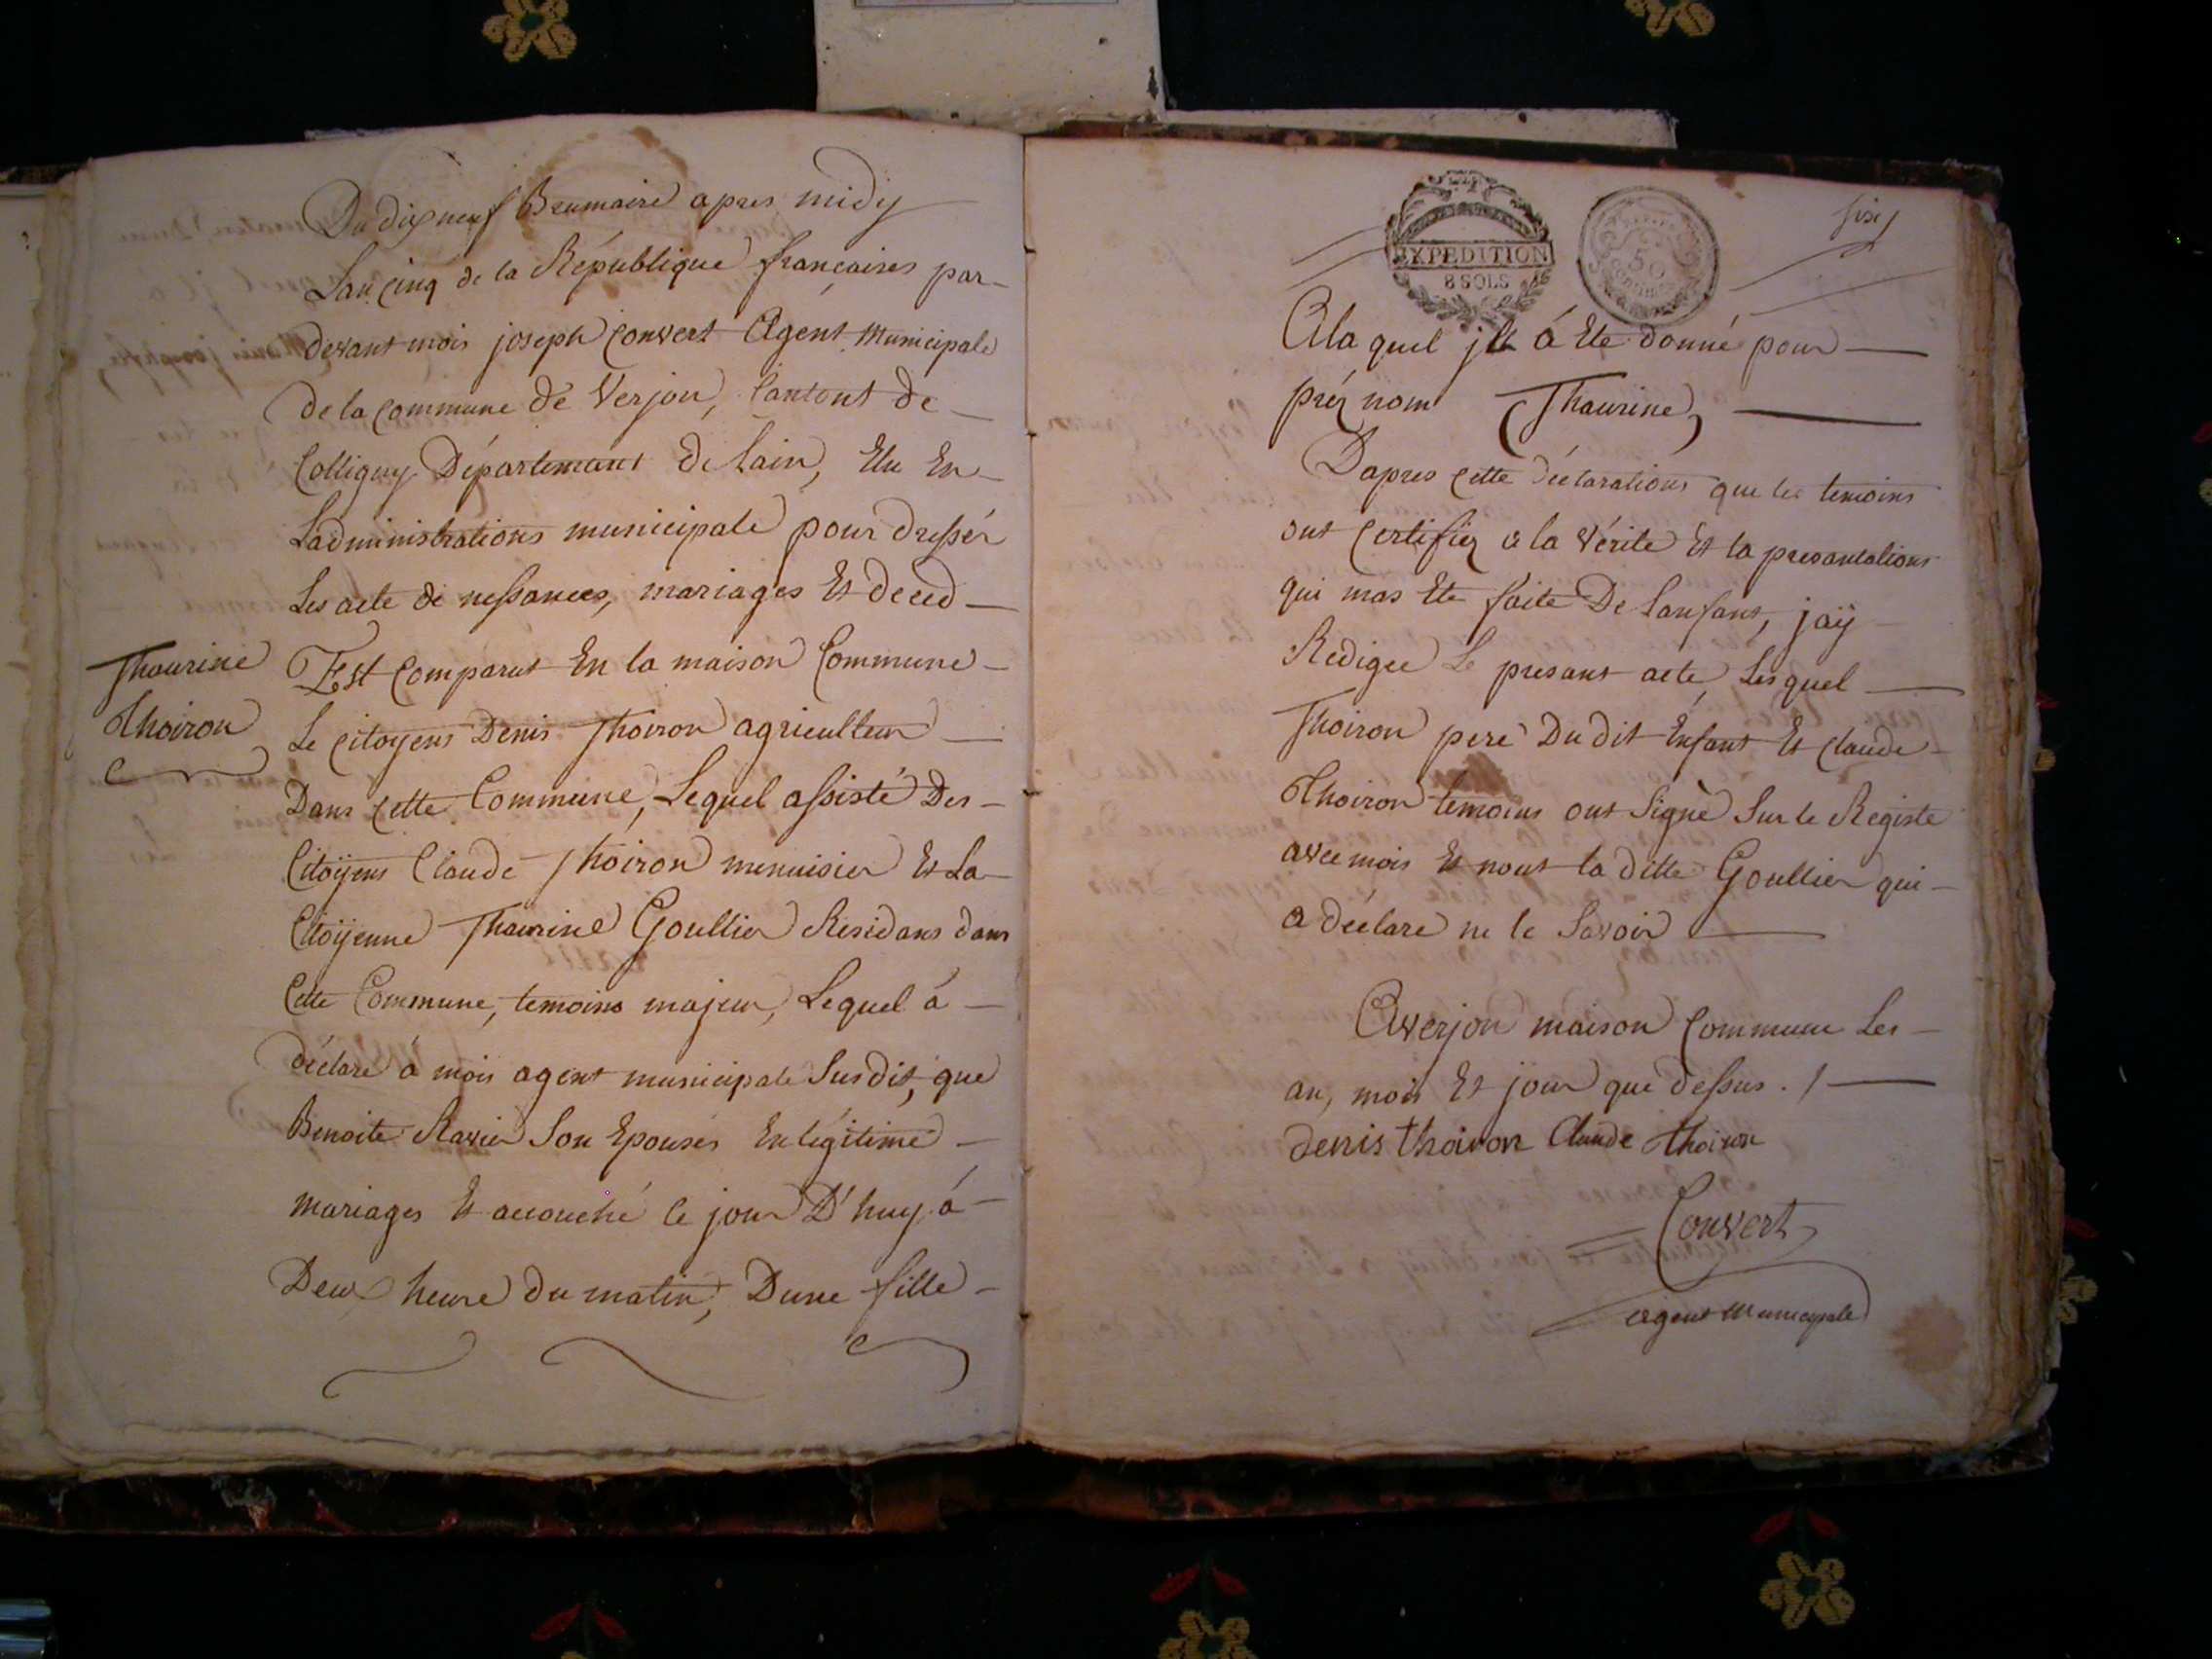 Du dixneuf Brumaire apres midy
Lan cinq de la République françaises par-
devant mois joseph Convert Agent Municipale
de la Commune de Verjon, Cantont de
Colligny Départemant de Lain, Elu En
Ladministrations municipale pour dressér
Les acte de nessances, mariages Et deced
Thaurine
Thoiron
Est Comparut En la maison Commune
Le Citoyens Denis Thoiron agriculteur
Dans Cette Commune, Lequel assisté Des
Citoÿens Claude Thoiron menuisier Et La
Citoÿenne Thaurine Goullier Residans dans
Cette Commune, temoins majeur, Lequel á
déclaré á mois agent municipale Susdit, que
Benoite Ravier Son Epouses En légitime
mariages Et accouché le jour D'huy á
Deux heure du matin, Dune fille
six
EXPEDITION
8 SOLS
50
CENTIMES
A la quel jll á Ete donné pour
préz nom Thaurine,
Dapres Cette déclarations que les temoins
ont Certifiez a la Vérité Et la presantations
qui mas Ete faite De Lanfant, jaÿ
Redigee Le presant acte, Lesquel
Thoiron pere Du dit Enfant Et Claude
Thoiron temoins ont Signé Sur le Registe
avec mois Et nont la ditte Goullier qui
a déclare ne le Savoir
A verjon maison Commune Les
an, mois Et jour que dessus. /
denis thoiron Claude thoiron
Convert
agent Municipale